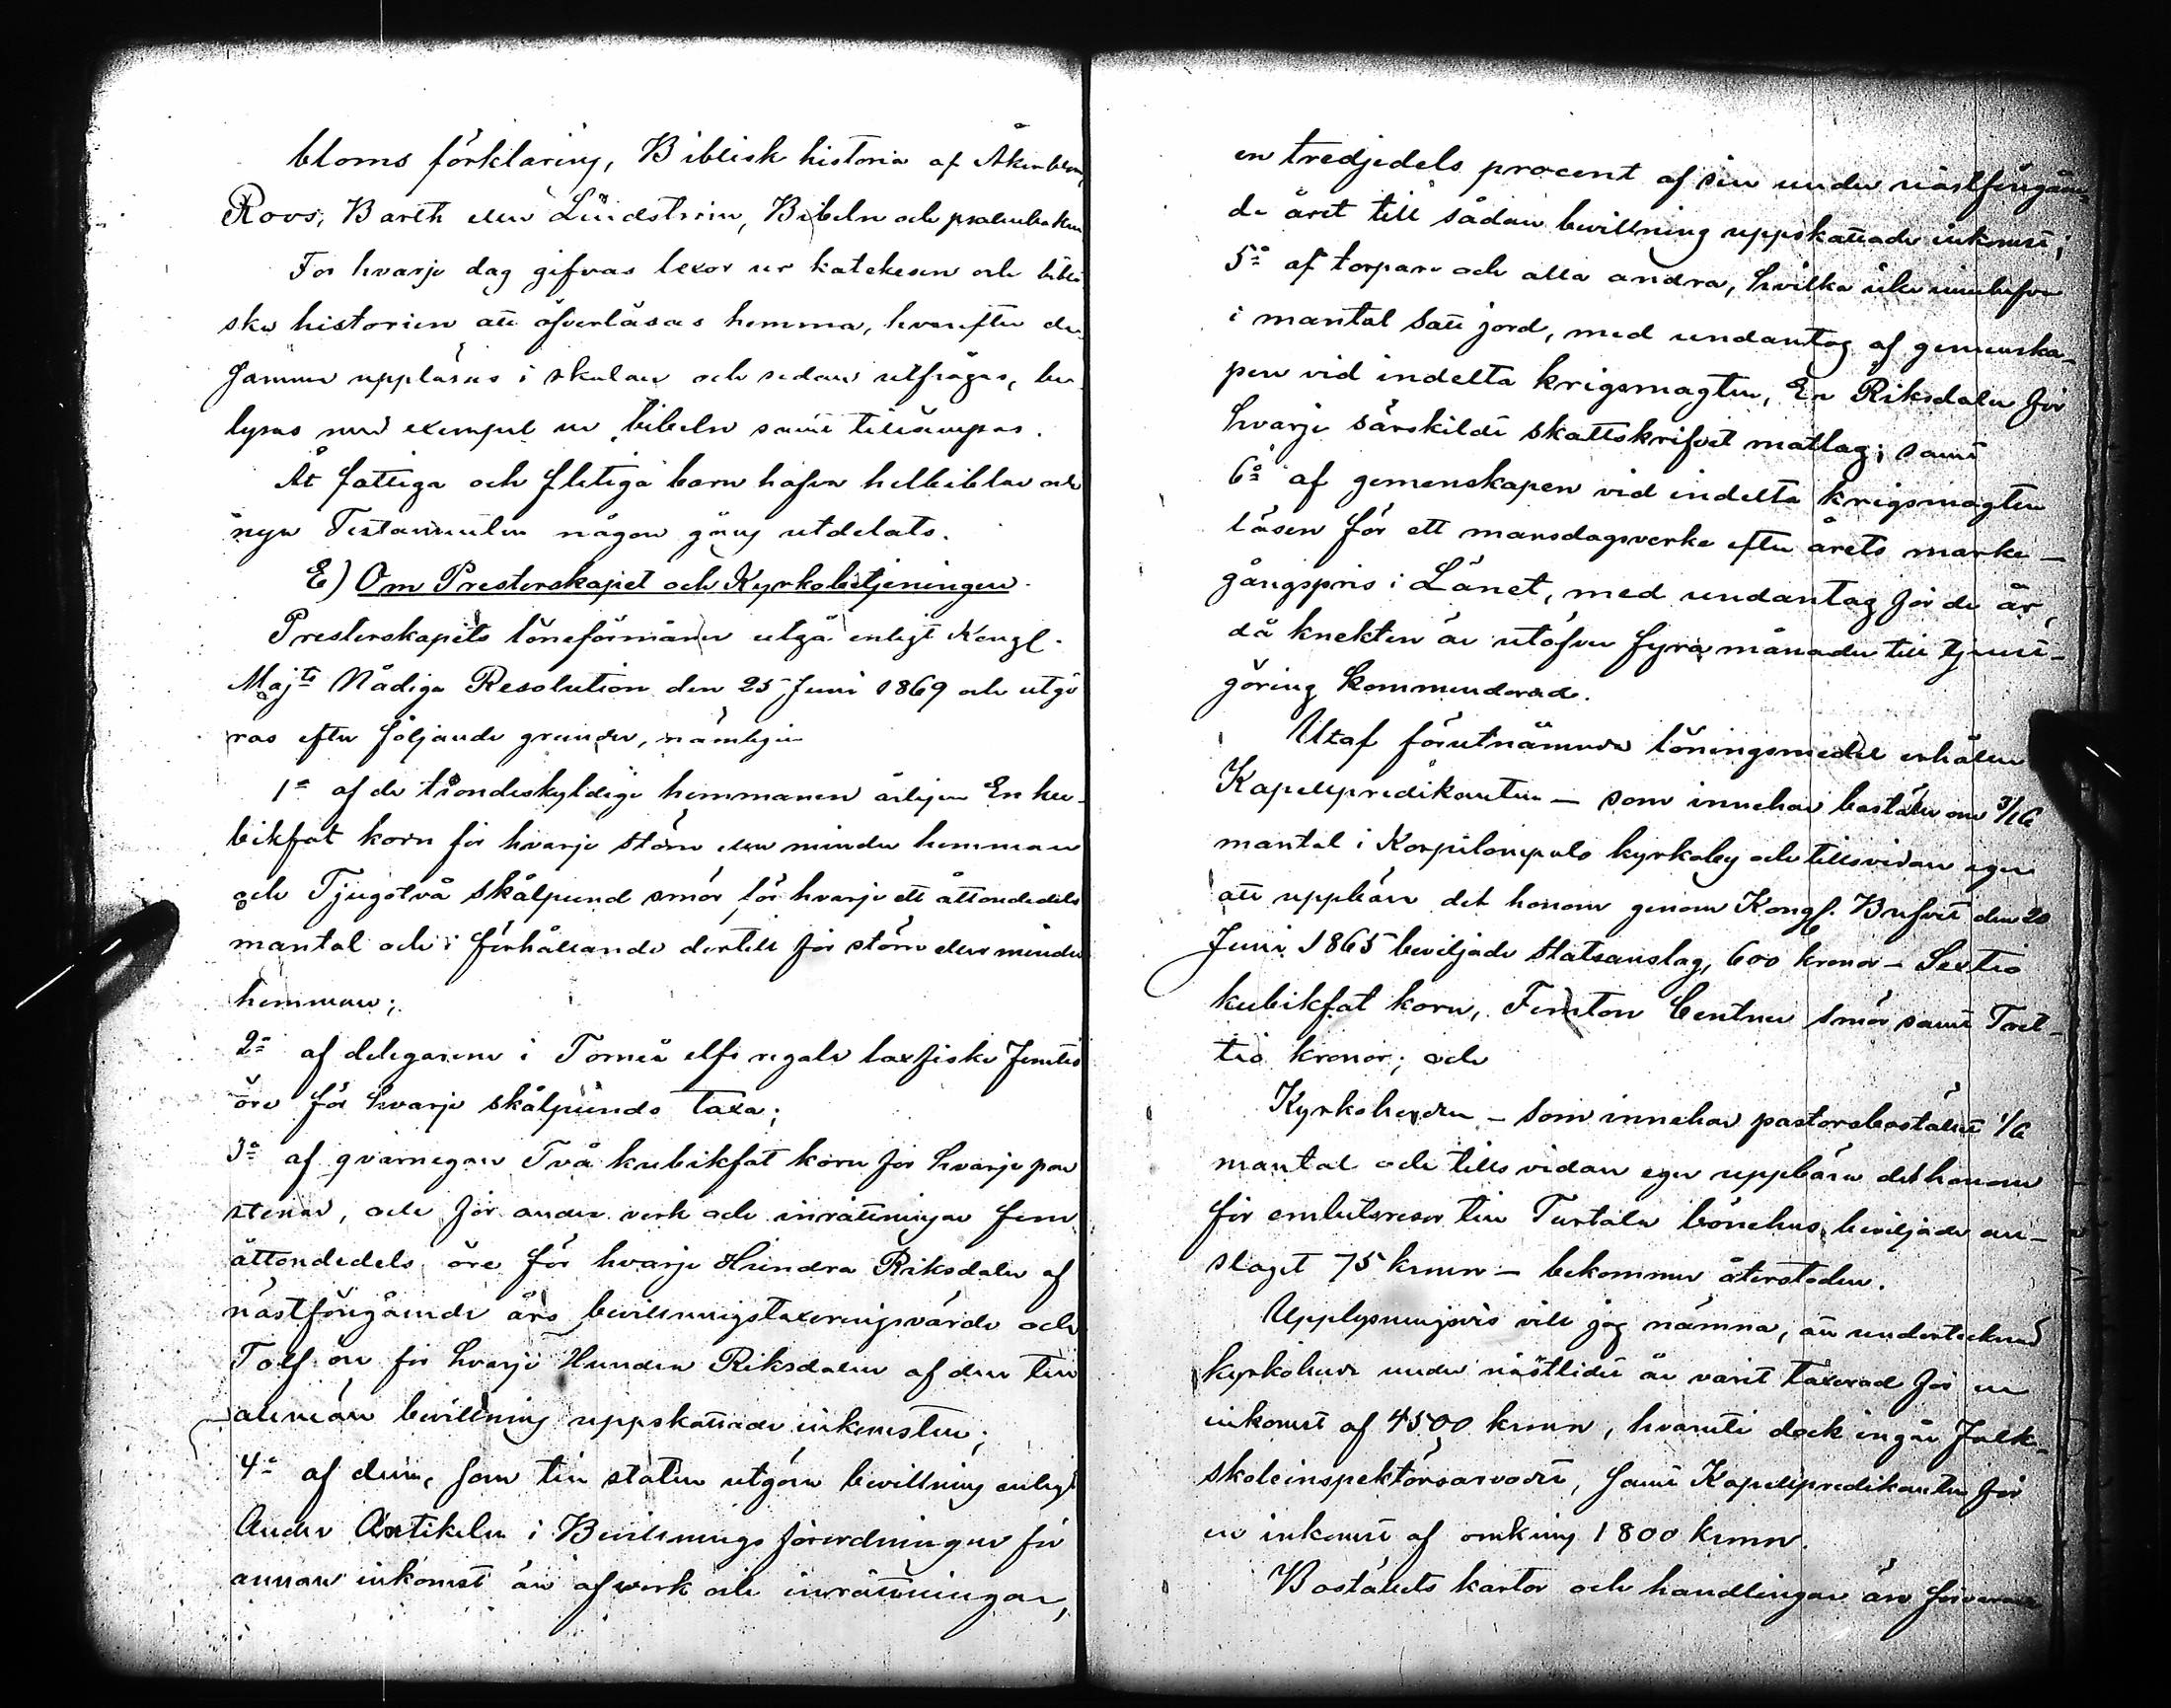 bloms förklaring, Biblisk historia af Åkerblom,
Roos, Barth eller Lindström, Bibeln och psalmboken
For hvarje dag gifvas lexor ur katekesen och bibli
ska historien att öfverläsas hemma, hvarefter de
samma uppläsas i skolan och sedan utfrågas, be
lysas med exempel ur bibeln samt tillämpas.
Åt fattiga och flitiga barn hafva helbiblar och
nya Testamenten någon gång utdelats.
E) Om Presterskapet och Kyrkobetjeningen.
Presterskapets löneförmåner utgå enligt Kongl.
Majts Nådiga Resolution den 25 Juni 1869 och utgö
ras efter följande grunder, nämligen
1o af de tiondeskyldige hemmanen årligen En ku-
bikfot korn för hvarje större eller mindre hemman
och Tjugotvå skålpund smör för hvarje ett åttondedels
mantal och i förhållande dertill för större eller mindre
hemman;
2o af delegarene i Torneå elfs regale laxfiske Femtio
öre för hvarje skålpunds taxa;
3o af qvarnegare Två kubikfat korn för hvarje par
stenar, och för andra verk och inrättningar fem
åttondedels öre för hvarje Hundra Riksdaler af
nästföregående års bevillningstaxeringsvärde och
Tolf öre för hvarje Hundra Riksdaler af den till
allmän bevillning uppskattade inkomsten;
4o af dem, som till staten utgöra bevillning enligt
Andra Artikeln i Bevillnings förordningen för
annan inkomst än af verk och inrättningar,
en tredjedels procent af sin under nästföregåen-
de året till sådan bevillning uppskattade inkomst;
5o af torpare och alla andra, hvilka icke innehafva
i mantal satt jord, med undantag af gemenska-
pen vid indelta krigsmagten, En Riksdaler för
hvarje särskildt skattskrifvet matlag; samt
6o af gemenskapen vid indelta krigsmagten
lösen för ett mansdagsverke efter årets marke-
gångspris i Länet, med undantag för de år,
då knekten är utöfver fyra månader till tjenst-
göring kommenderad.
Utaf förutnämnda löningsmedel erhåller
Kapellpredikanten – som innehar boställe om 3/16
mantal i Korpilompolo kyrkoby och tillsvidare eger
att uppbära det honom genom Kongl. Brefvet den 20
Juni 1865 beviljade Statsanslag, 600 kronor – Sextio
kubikfat korn, Femton Centner smör samt Tret-
tio kronor; och
Kyrkoherden – som innehar pastorsbostället 1/6
mantal och tills vidare eger uppbära det honom
för embetsresor till Turtola bönehus beviljade an-
slaget 75 kronor – bekommer återstoden.
Upplysningsvis vill jag nämna, att undertecknad
kyrkoherde under nästlidet år varit taxerad för en
inkomst af 4500 kronor, hvaruti dock ingår Folk-
skoleinspektörsarvodet, samt Kapellpredikanten för
en inkomst af omkring 1800 kronor.
Boställets kartor och handlingar äro